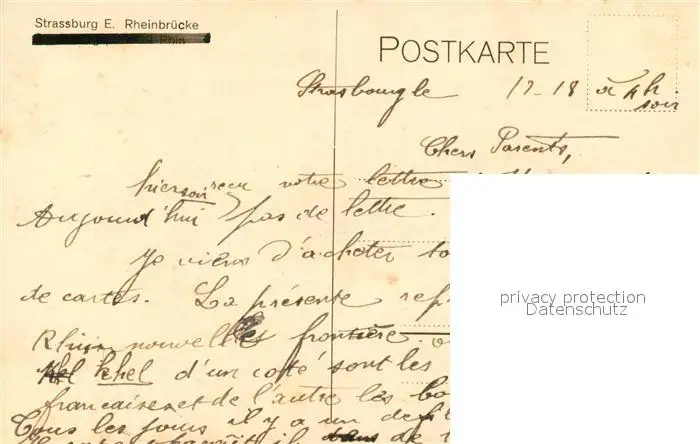 Strassburg E. Rheinbrücke
POSTKARTE
Strasbourg le 12-18 à 4h
soir
Chers Parents,
hier soir reçu votre lettre
Aujourd'hui pas de lettre.
Je viens d'acheter
de cartes. La présente rep
Rhin nouvelle frontière.
Khel d'un coté sont les
francaises et de l'autre les bo
Tous les jours il y a un defil
privacy protection
Datenschutz